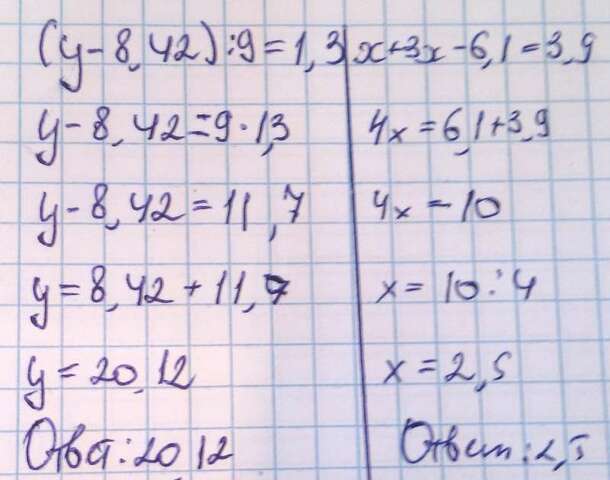 (y-8,42):9=1,3
y-8,42=9·1,3
y-8,42=11,7
y=8,42+11,7
y=20,12
Ответ:20,12
x+3x-6,1=3,9
4x=6,1+3,9
4x=10
x=10:4
x=2,5
Ответ:2,5